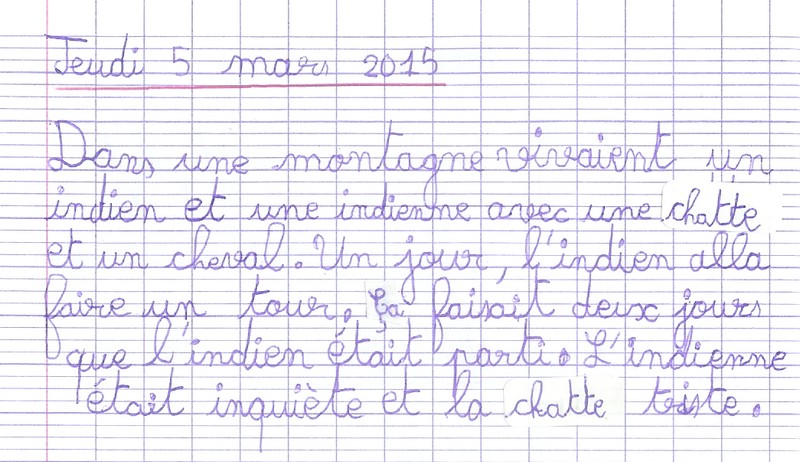 Jeudi 5 mars 2015
Dans une montagne vivaient un
indien et une indienne avec une chatte
et un cheval. Un jour, l'indien alla
faire un tour. Ça faisait deux jours
que l'indien était parti. L'indienne
était inquiète et la chatte triste.